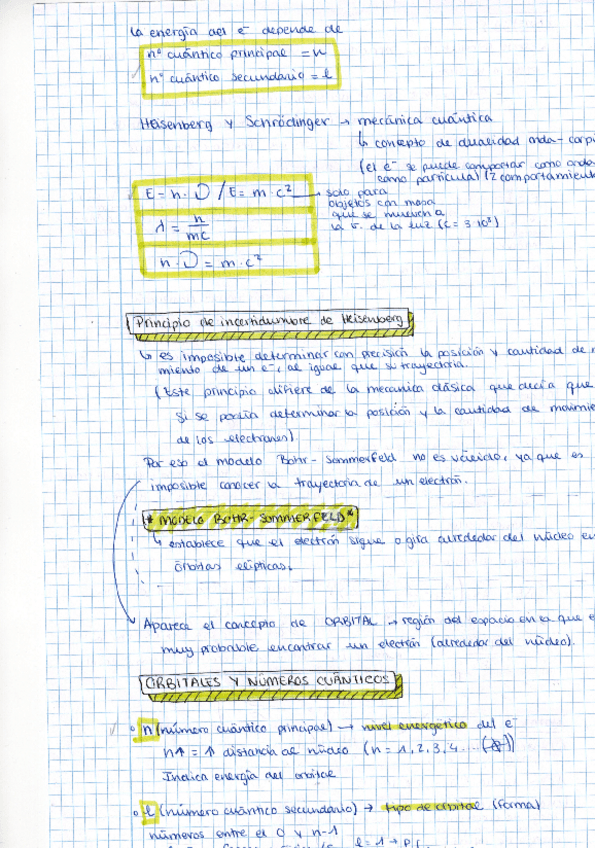 La energía del e⁻ depende de
nº cuántico principal = n
nº cuántico secundario = l
Heisenberg y Schrödinger → mecánica cuántica
↳ concepto de dualidad onda-corpi
(el e⁻ se puede comportar como onda
como partícula) (2 comportamient
E = h · ν / E = m · c² → solo para
objetos con masa
que se mueven a
la v. de la luz (c = 3·10⁸)
λ = h/mc
h · ν = m · c²
Principio de incertidumbre de Heisenberg
↳ es imposible determinar con precisión la posición y cantidad de
miento de un e⁻, al igual que su trayectoria.
(Este principio difiere de la mecánica clásica que decía que
si se podía determinar la posición y la cantidad de movimie
de los electrones).
Por eso el modelo Bohr-Sommerfeld no es válido, ya que es
imposible conocer la trayectoria de un electrón.
* MODELO BOHR-SOMMERFELD *
↳ establece que el electrón sigue o gira alrededor del núcleo en
órbitas elípticas.
Aparece el concepto de ORBITAL → región del espacio en la que e
muy probable encontrar un electrón (alrededor del núcleo).
ORBITALES Y NÚMEROS CUÁNTICOS
◦ n (número cuántico principal) → nivel energético del e⁻
n↑ = ↑ distancia al núcleo (n = 1, 2, 3, 4...
Indica energía del orbital
◦ l (número cuántico secundario) → tipo de orbital (forma)
números entre el 0 y n-1
l = 1 → p